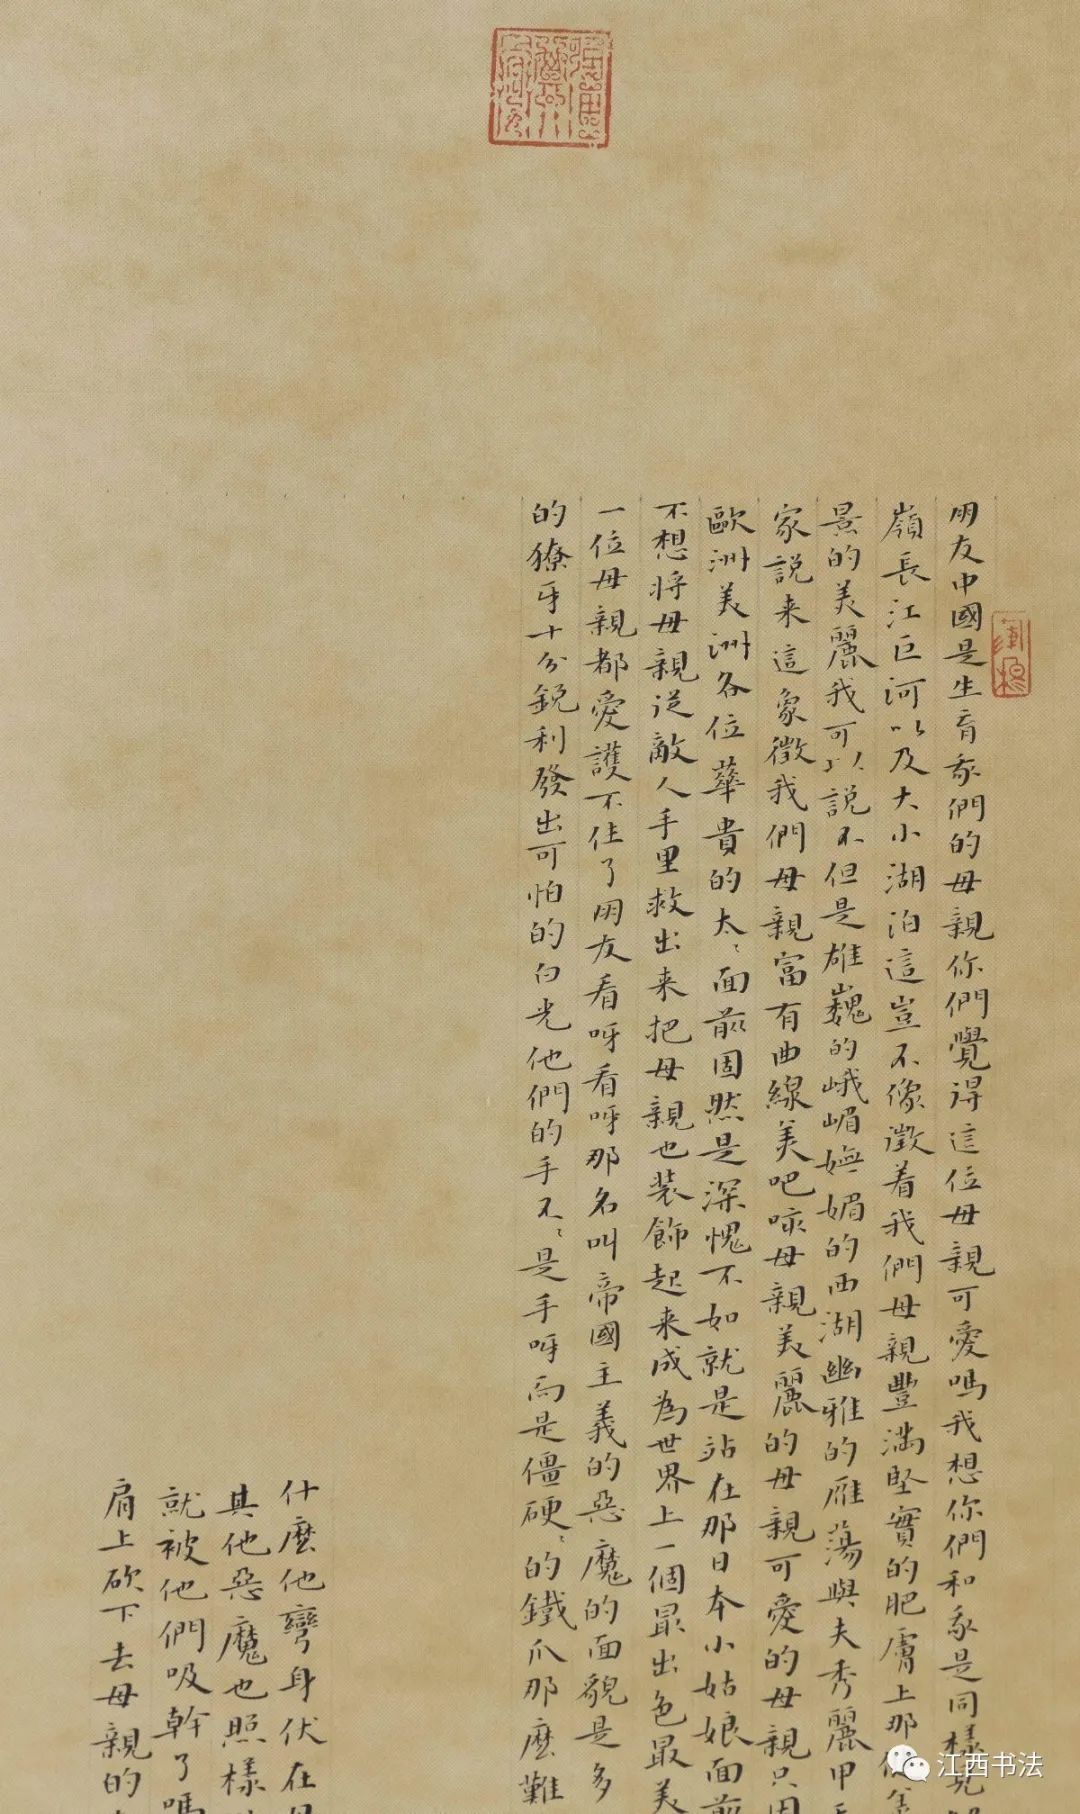 朋友中國是生育我們的母親你們覺得這位母親可愛嗎我想你們和我是同樣見
嶺長江巨河以及大小湖泊這豈不像徵着我們母親豐滿堅實的肥膚上那
景的美麗我可以說不但是雄巍的峨嵋嫵媚的西湖幽雅的雁蕩與夫秀麗甲
家説来這象徵我們母親富有曲線美吧咳母親美麗的母親可愛的母親只因
歐洲美洲各位華貴的太〻面前固然是深愧不如就是站在那日本小姑娘面前
不想将母親从敵人手里救出来把母親也装飾起来成為世界上一個最出色最美
一位母親都愛護不住了朋友看呀看呀那名叫帝國主義的惡魔的面貌是多
的獠牙十分鋭利發出可怕的白光他們的手不〻是手呀而是僵硬〻的鐵爪那麽難
什麽他彎身伏在
其他惡魔也照樣
就被他們吸幹了嗎
肩上砍下去母親的
江西书法